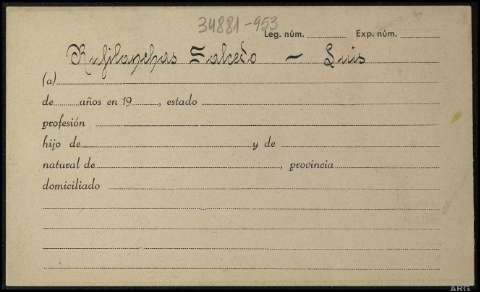 34881-953
Leg. núm. Exp. núm.
Rufilanchas Salcedo - Luis
(a)
de años en 19 , estado
profesión
hijo de y de
natural de , provincia
domiciliado